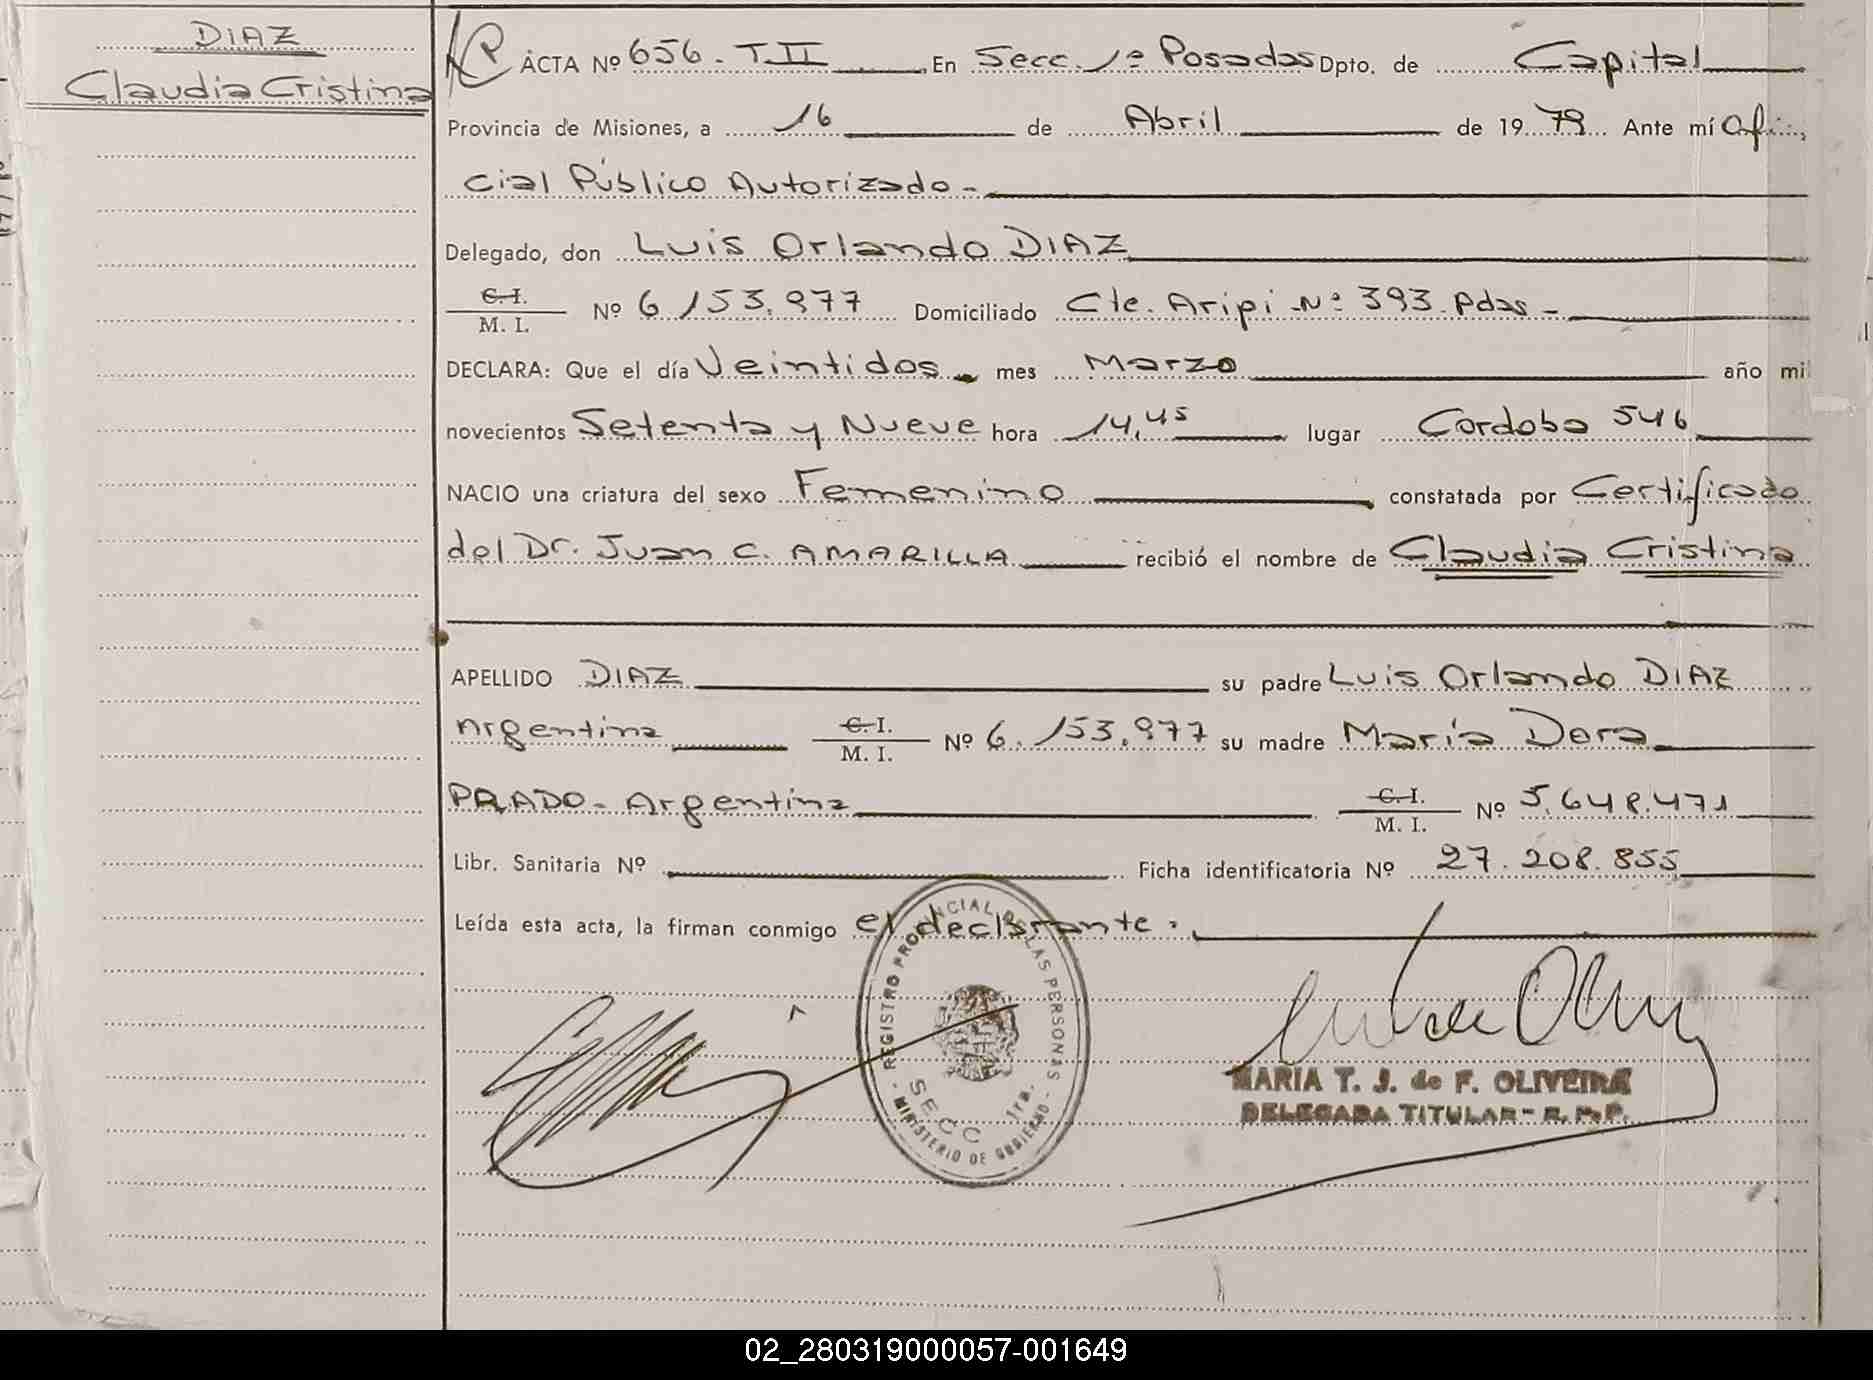 DIAZ
Claudia Cristina
ACTA Nº 656. T II En Secc. 1ª Posadas Dpto. de Capital
Provincia de Misiones, a 16 de Abril de 1979 Ante mí Ofi
cial Público Autorizado -
Delegado, don Luis Orlando DIAZ
C. I.
M. I. Nº 6 153.977 Domiciliado Cte. Aripi Nº 393 Pdas -
DECLARA: Que el día Veintidos mes Marzo año mil
novecientos Setenta y Nueve hora 14,45 lugar Cordoba 546
NACIO una criatura del sexo Femenino constatada por Certificado
del Dr. Juan C. AMARILLA recibió el nombre de Claudia Cristina
APELLIDO DIAZ su padre Luis Orlando DIAZ
Argentina C. I.
M. I. Nº 6. 153.977 su madre María Dora
PRADO - Argentina C. I.
M. I. Nº 5.648.471
Libr. Sanitaria Nº Ficha identificatoria Nº 27. 208. 855
Leída esta acta, la firman conmigo el declarante.
REGISTRO PROVINCIAL DE LAS PERSONAS
SECC 1ra.
- MINISTERIO DE GOBIERNO -
MARIA T. J. de F. OLIVEIRA
DELEGADA TITULAR - R. P. P.
02_280319000057-001649